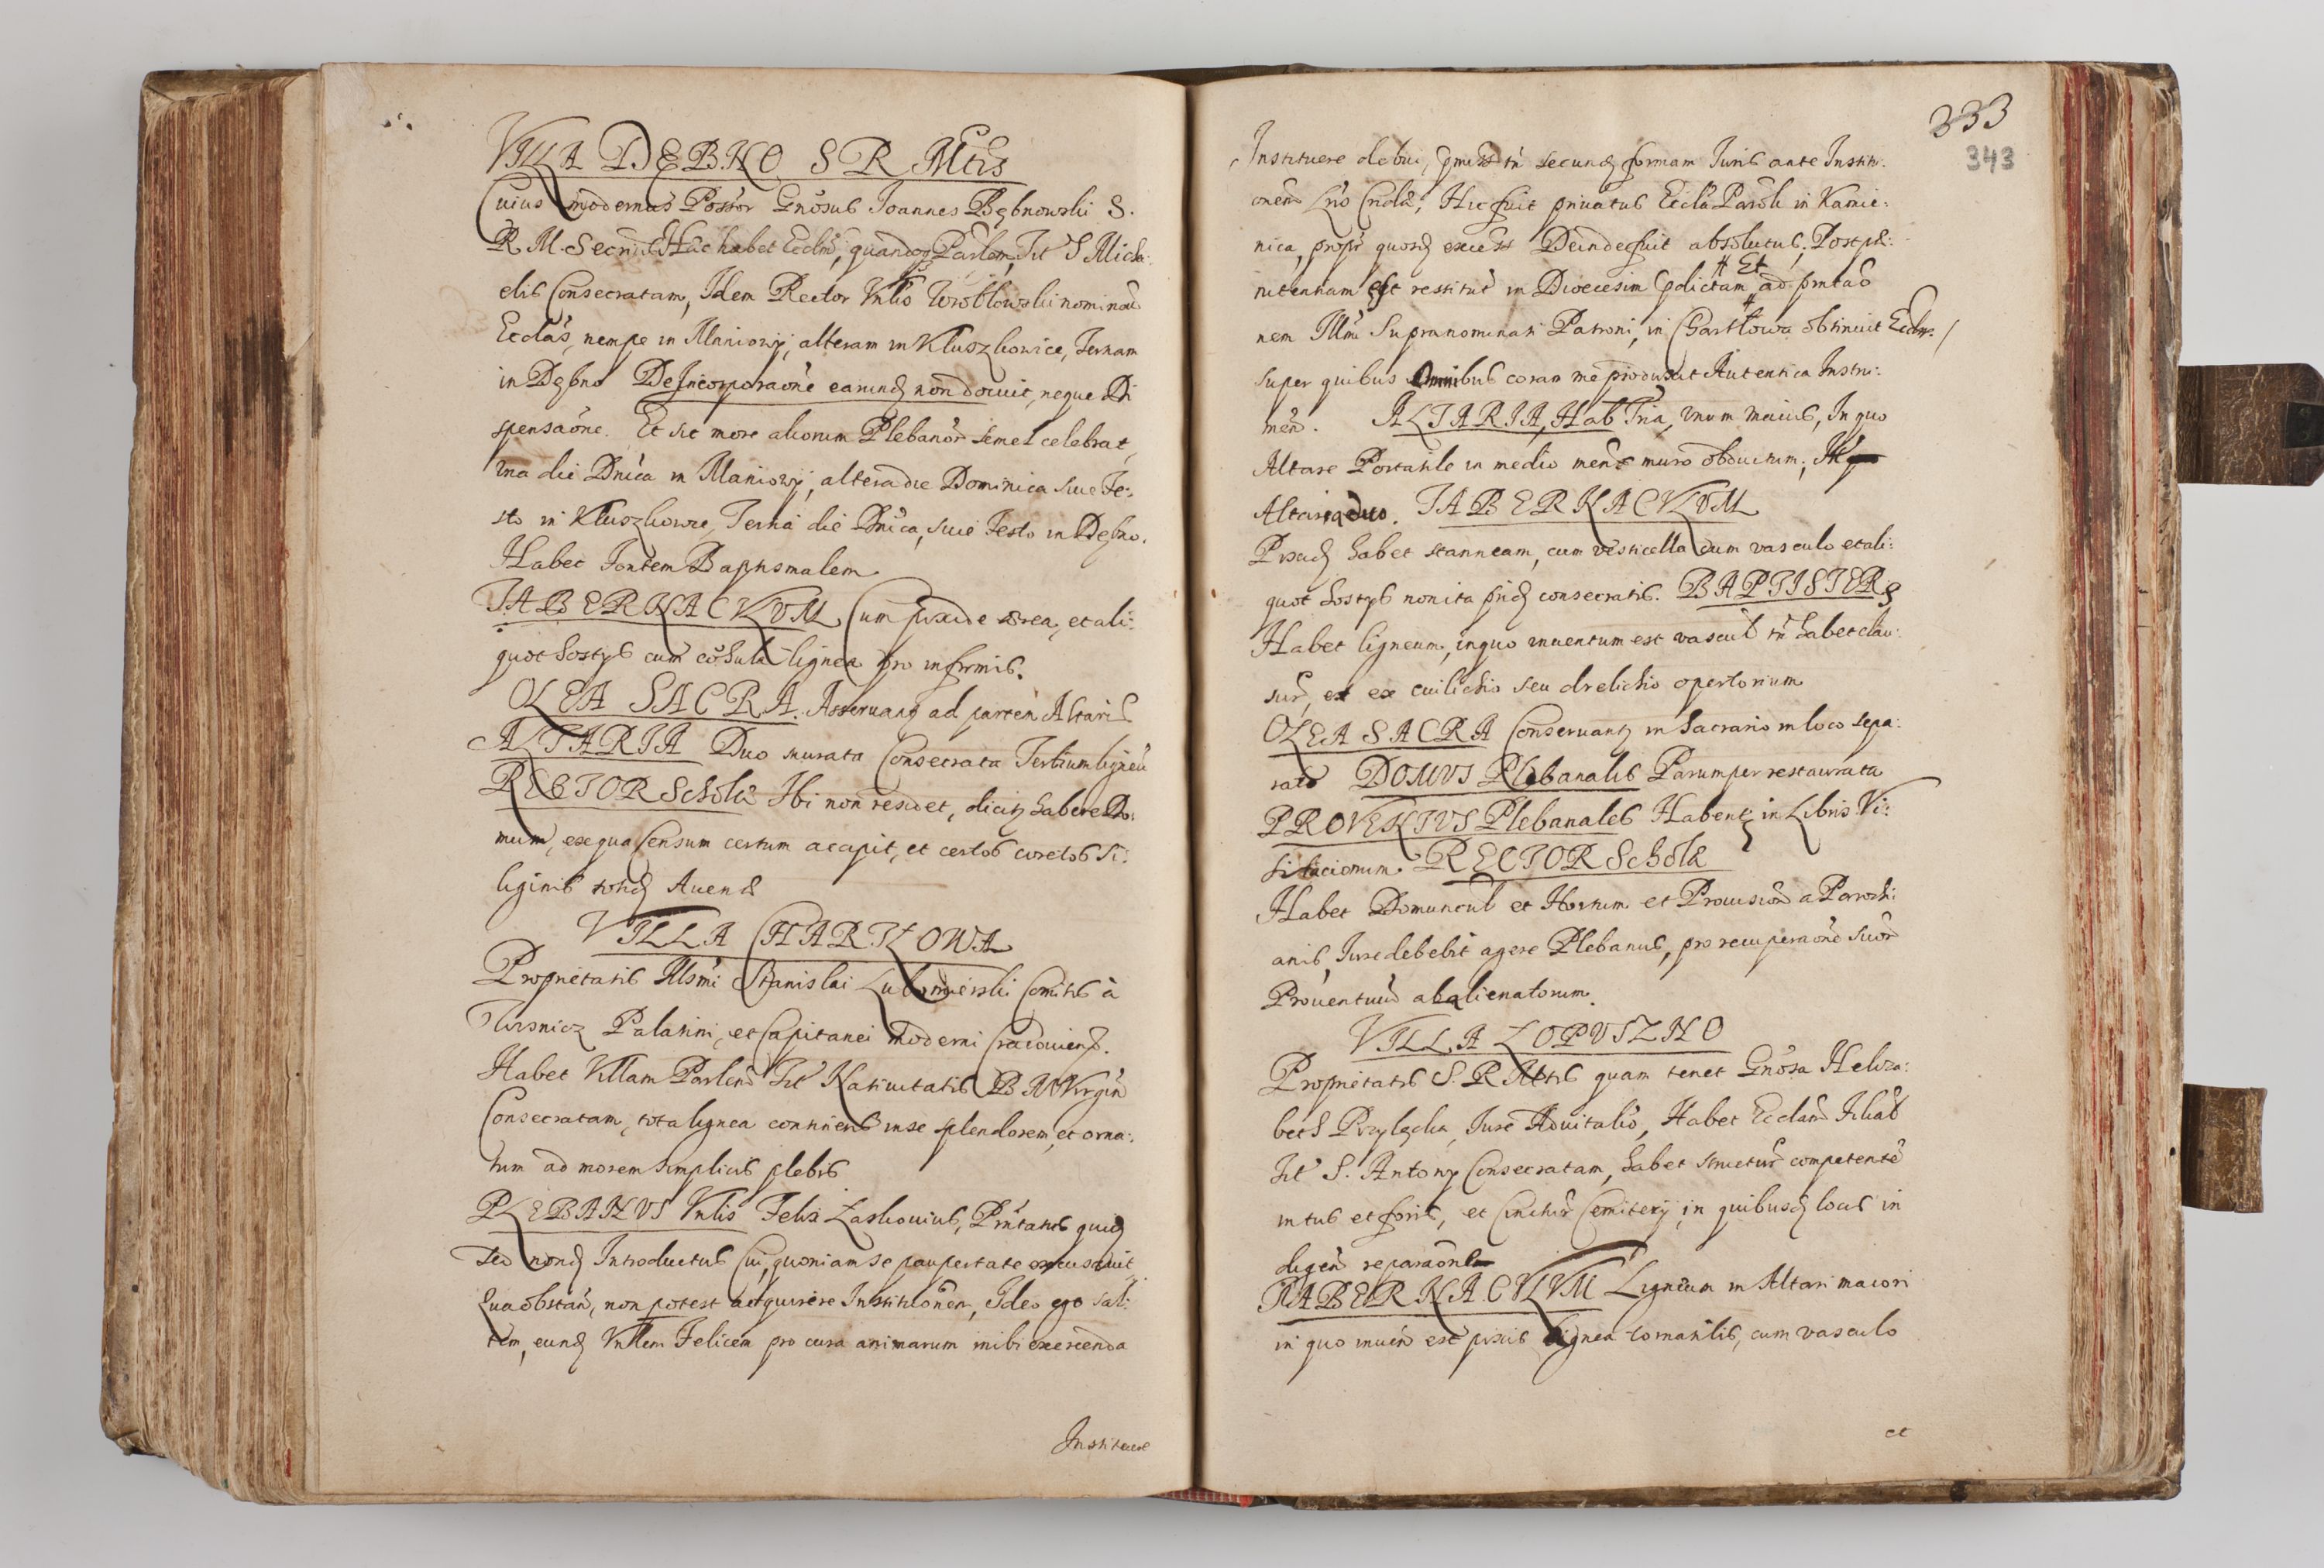 VILLA DEBNO S R Mtis
Cuius modernus Possor Gnosus Joannes Dębnowski S.
R. M. Secrius Haec habet Ecclm, quandoq Parlem, Tit S Micha:
elis Consecratam, Idem Rector Vnlis Wroblowski nominat
Ecclas, nempe in Maniowy, alteram in Kluszkowice, Ternam
in Dębno De Incorporaone earund non docuit, neque Di
spensaone. Et sic more aliorum Plebanor semel celebrat,
vna die Dnica in Maniowy, altera die Dominica siue Fe:
sto in Kluszkowce, Terna die Dnica, siue Festo in Dębno.
Habet Fontem Baptismalem
TABERNACVLVM Cum pixide aerea, et ali:
quot hostys cum cohula lignea pro infirmis.
OLEA SACRA. Asseruant ad partem Altaris
ALTARIA Duo murata Consecrata Tertium ligneu
RECTOR Scholae Ibi non residet, dicitz habere Do:
mum, ex qua Censum certum accipit, et certos coretos si:
liginis totid Auenae
VILLA CHARTLOWA
Proprietatis Illsmi Stanislai Lubomierski Comitis à
Wisnicz Palatini, et Capitanei moderni Cracouiens.
Habet Villam Parlem Tit Natiuitatis B M Virgin
Consecratam, tota lignea continens in se splendorem, et orna:
tum ad morem simplicis plebis
PLEBANVS Vnlis Felix Laskouius, Prntatus quid
sed nond Introductus Cui, quoniam se paupertate excusauit,
Qua obstan, non potest acquirere Institutionem, Ideo ego sal:
tem, eund Vnlem Felicem pro cura animarum inibi exercenda
Instituere
333
343
Instituere debui, pmiss tn secund formam Juris ante Institu:
onem Lris Cridae, Hic fuit priuatus Eccla Paroli in Kamie:
nica, propr quosd excess Deinde fuit absolutus, Post pae:
nitentiam est restitut in Dioecesim pdictam # Et ad prntao
nem Illmi Supranominati Patroni, in Chartlowa obtinuit Eccles.
super quibus Omnibus coram me produxit Autentica Instru:
men. ALTARIA, Hab Tria, vnum maius, In quo
Altare Portatile in medio mensae muro obductum,
Altaria duo. TABERNACVLVM
Pixid habet stanneam, cum vesticella cum vasculo et ali:
quot hostys non ita prid consecratis. BAPTISTER
Habet ligneum, in quo inuentum est vascul tn habet clau:
sur, et ex cuilichio seu drelichio opertorium
OLEA SACRA Conseruantz in Sacrario in loco sepa:
rato DOMVS Plebanalis Parumper restaurata
PROVENTVS Plebanales Habentz in Libris Vi:
sitacionum. RECTOR Scholae
Habet Domuncul et Hortum et Prouision a Paroch:
anis, Jure debebit agere Plebanus, pro recuperaone suor
Prouentuum abalienatorum.
VILLA LOPVSZNO
Proprietatis S. R Mtis quam tenet Gnosa Heliza:
beth Przylęcka, Jure Aduitalio, Habet Ecclam Filial
Tit S. Antony Consecratam, habet structur competente
intus et foris, et Cinctur Cemitery, in quibusd locis in
digen reparaone
TABERNACVLVM Ligneum in Altari maiori
in quo inuen est pixis lignea tornatilis, cum vasculo
et